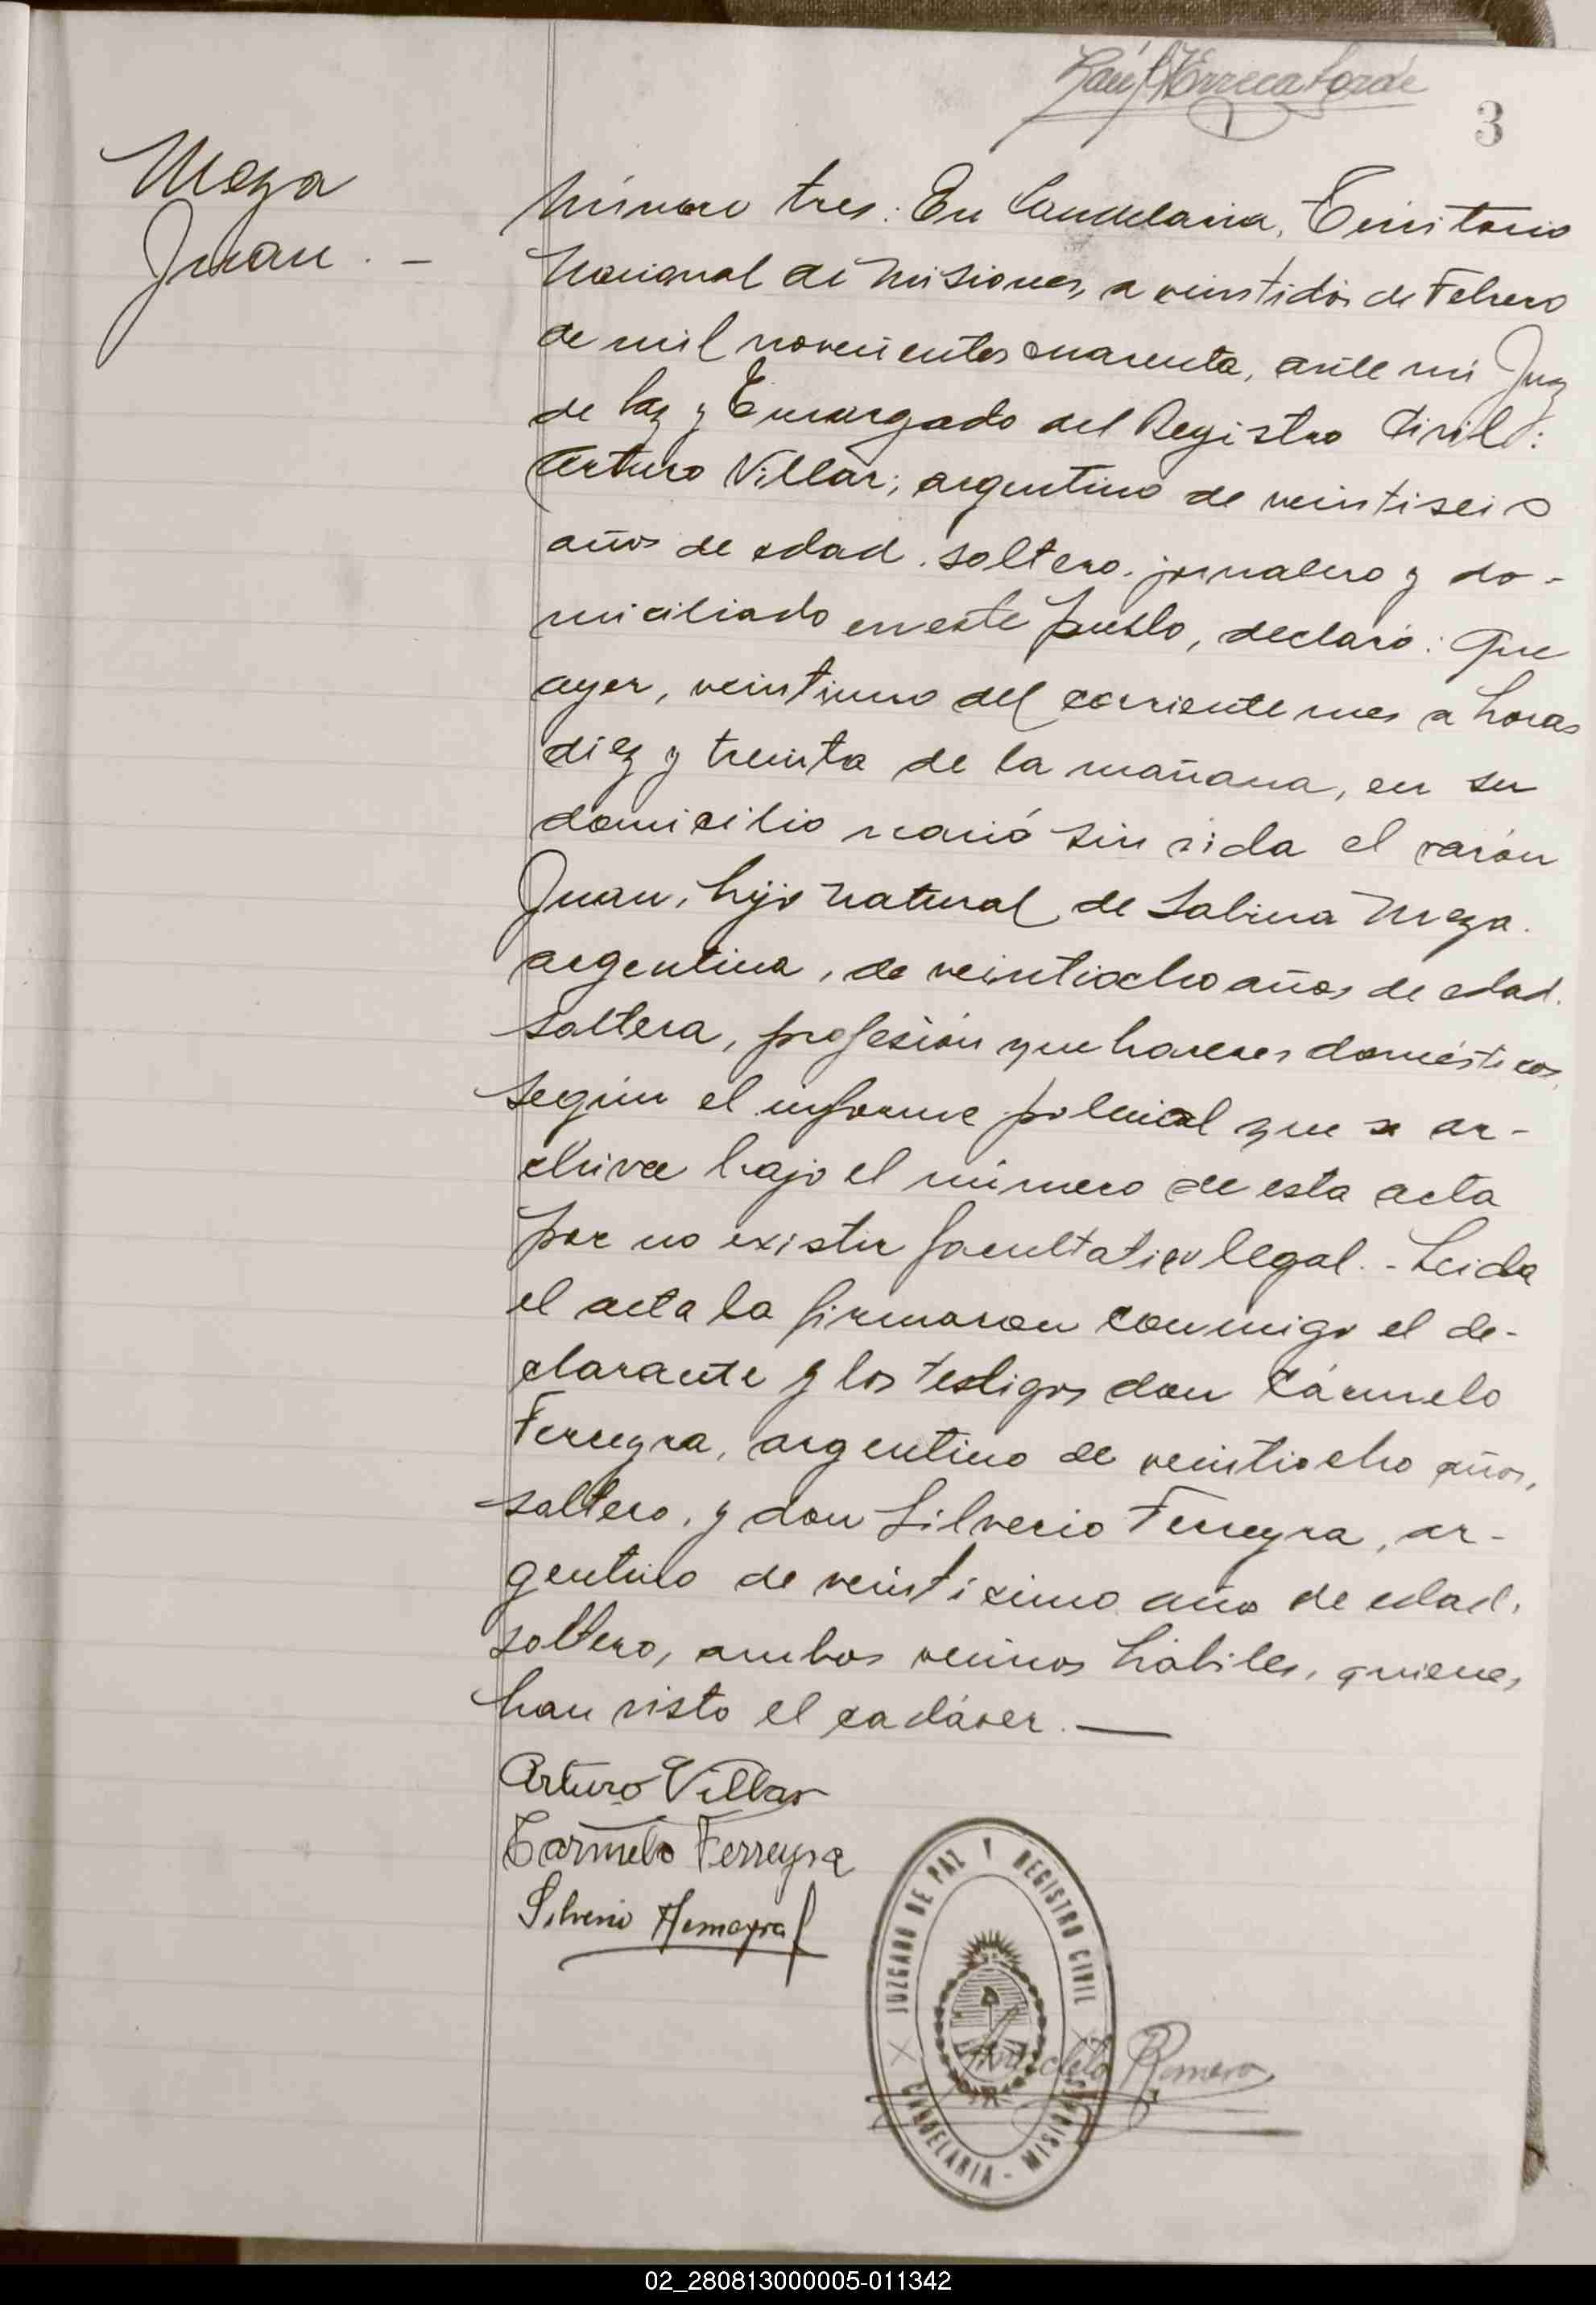 3
Meza
Juan. -
Número tres: En Candelaria, Territorio
Nacional de Misiones, a veintidós de Febrero
de mil novecientos cuarenta, ante mi Juez
de Paz y Encargado del Registro Civil:
Arturo Villar; argentino de veintiseis
años de edad. soltero. jornalero y do-
miciliado en este pueblo, declaró: Que
ayer, veintiuno del corriente mes a horas
diez y treinta de la mañana, en su
domicilio nació sin vida el varón
Juan, hijo natural de Sabina Meza.
argentina, de veintiocho años de edad.
soltera, profesión quehaceres domésticos,
según el informe policial que se ar-
chiva bajo el número de esta acta
por no existir facultativo legal. - Leida
el acta la firmaron conmigo el de-
clarante y los testigos don Cármelo
Ferreyra, argentino de veintiocho años,
soltero, y don Silverio Ferreyra, ar-
gentino de veinticinco año de edad,
soltero, ambos vecinos hábiles, quienes
han visto el cadáver. —
Arturo Villar
Carmelo Ferreyra
Silverio
JUZGADO DE PAZ Y REGISTRO CIVIL
CANDELARIA - MISIONES
Romero
02_280813000005-011342